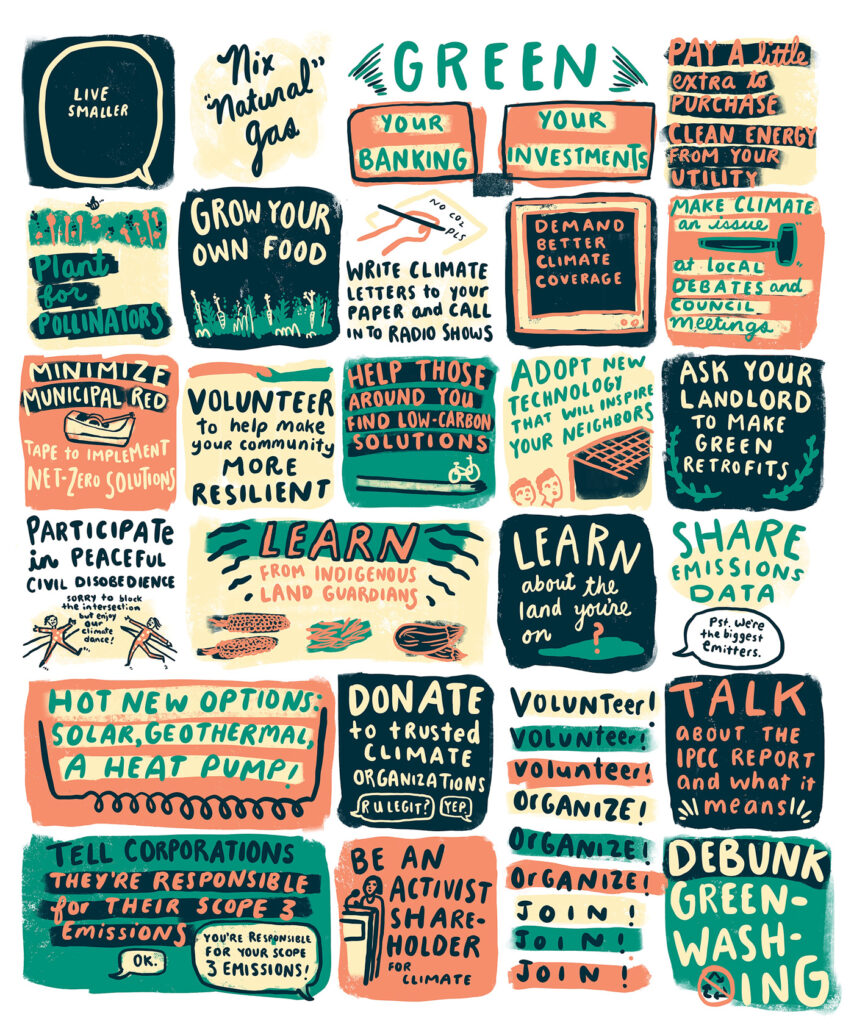 LIVE
SMALLER
Nix
"Natural"
gas
GREEN
YOUR
BANKING
YOUR
INVESTMENTS
PAY A little
extra to
PURCHASE
CLEAN ENERGY
FROM YOUR
UTILITY
Plant
for
POLLINATORS
GROW YOUR
OWN FOOD
NO CO2
PLS
WRITE CLIMATE
LETTERS to YOUR
PAPER and CALL
IN TO RADIO SHOWS
DEMAND
BETTER
CLIMATE
COVERAGE
MAKE CLIMATE
an issue
at LOCAL
DEBATES and
COUNCIL
meetings
MINIMIZE
MUNICIPAL RED
TAPE to IMPLEMENT
NET-ZERO SOLUTIONS
VOLUNTEER
to help make
your community
MORE
RESILIENT
HELP THOSE
AROUND YOU
FIND LOW-CARBON
SOLUTIONS
ADOPT NEW
TECHNOLOGY
THAT WILL INSPIRE
YOUR NEIGHBORS
ASK YOUR
LANDLORD
TO MAKE
GREEN
RETROFITS
PARTICIPATE
in PEACEFUL
CIVIL DISOBEDIENCE
SORRY to block
the intersection
but enjoy
our
climate
dance!
LEARN
FROM INDIGENOUS
LAND GUARDIANS
LEARN
about the
land you're
on ?
SHARE
EMISSIONS
DATA
Pst. We're
the biggest
emitters.
HOT NEW OPTIONS:
SOLAR, GEOTHERMAL,
A HEAT PUMP!
DONATE
to trusted
CLIMATE
ORGANIZATIONS
R U LEGIT? YEP.
VOLUNTEER!
VOLUNTEER!
Volunteer!
ORGANIZE!
ORGANIZE!
ORGANIZE!
JOIN!
JOIN!
JOIN!
TALK
ABOUT THE
IPCC REPORT
and what it
means
TELL CORPORATIONS
THEY'RE RESPONSIBLE
for THEIR SCOPE 3
EMISSIONS
YOU'RE RESPONSIBLE
FOR YOUR SCOPE
3 EMISSIONS!
OK.
BE AN
ACTIVIST
SHARE-
HOLDER
FOR
CLIMATE
DEBUNK
GREEN-
WASH-
ING